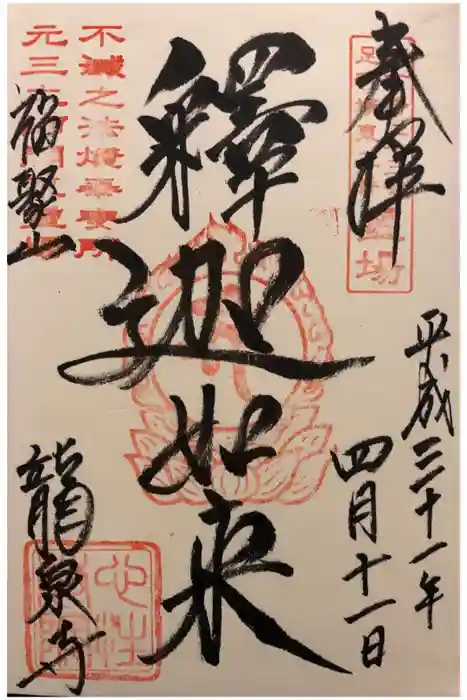 奉拝
平成三十一年
四月十一日
釋迦如来
不滅之法燈奉安所
元三大師
福聚山
龍泉寺